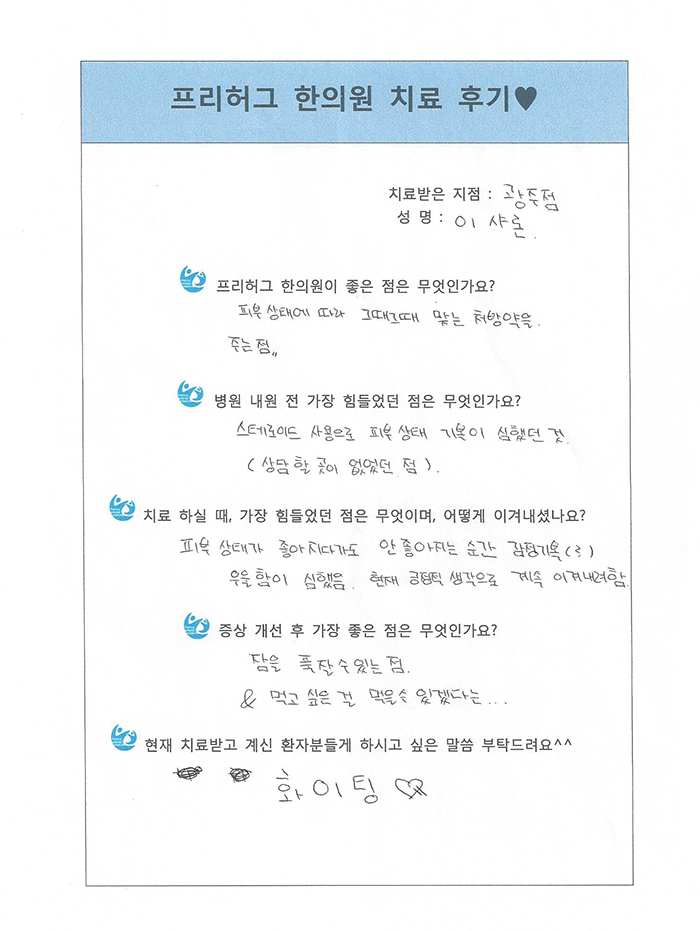 프리허그 한의원 치료 후기♥
치료받은 지점 : 광주점
성 명 : 이 샤론.
프리허그 한의원이 좋은 점은 무엇인가요?
피부상태에 따라 그때그때 맞는 처방약을
주는점,,
병원 내원 전 가장 힘들었던 점은 무엇인가요?
스테로이드 사용으로 피부상태 기복이 심했던 것.
(상담할 곳이 없었던 점).
치료 하실 때, 가장 힘들었던 점은 무엇이며, 어떻게 이겨내셨나요?
피부 상태가 좋아지다가도 안좋아지는 순간 감정기복(?)
우울함이 심했음. 현재 긍정적 생각으로 계속 이겨내려함.
증상 개선 후 가장 좋은 점은 무엇인가요?
잠을 푹잘수있는점.
& 먹고 싶은 걸 먹을수 있겠다는...
현재 치료받고 계신 환자분들게 하시고 싶은 말씀 부탁드려요^^
화이팅 ♡